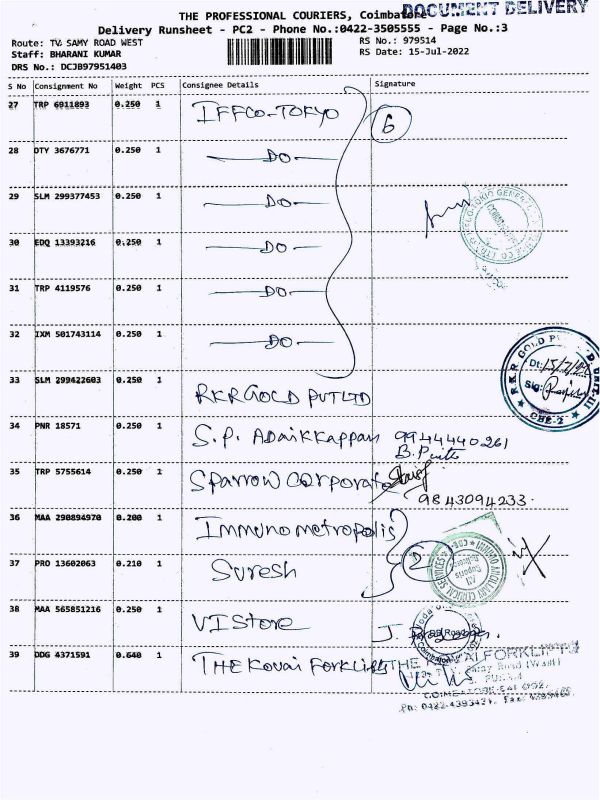 DOCUMENT DELIVERY
THE PROFESSIONAL COURIERS, Coimbatore
Delivery Runsheet - PC2 - Phone No.:0422-3505555 - Page No.:3
Route: TV SAMY ROAD WEST RS No.: 979514
Staff: BHARANI KUMAR RS Date: 15-Jul-2022
DRS No.: DCJB97951403
S No Consignment No Weight PCS Consignee Details Signature
27 TRP 6911893 0.250 1 IFFCO-TOKYO 6
28 DTY 3676771 0.250 1 DO
29 SLM 299377453 0.250 1 DO
30 EDQ 13393216 0.250 1 DO
31 TRP 4119576 0.250 1 DO
32 IXM 501743114 0.250 1 DO
33 SLM 299422603 0.250 1 RKR GOLD PVT LTD
Dt: 15/7/22
Sig:
CBE-2
34 PNR 18571 0.250 1 S.P. ADaikkappan 9944440261
35 TRP 5755614 0.250 1 Sparrow Corporate
9843094233
36 MAA 290894970 0.200 1 Immunometropolis
37 PRO 13602063 0.210 1 Suresh 2
38 MAA 565851216 0.250 1 VI Store
39 DDG 4371591 0.640 1 THE Kovai Forklifts THE KOVAI FORKLIFTS